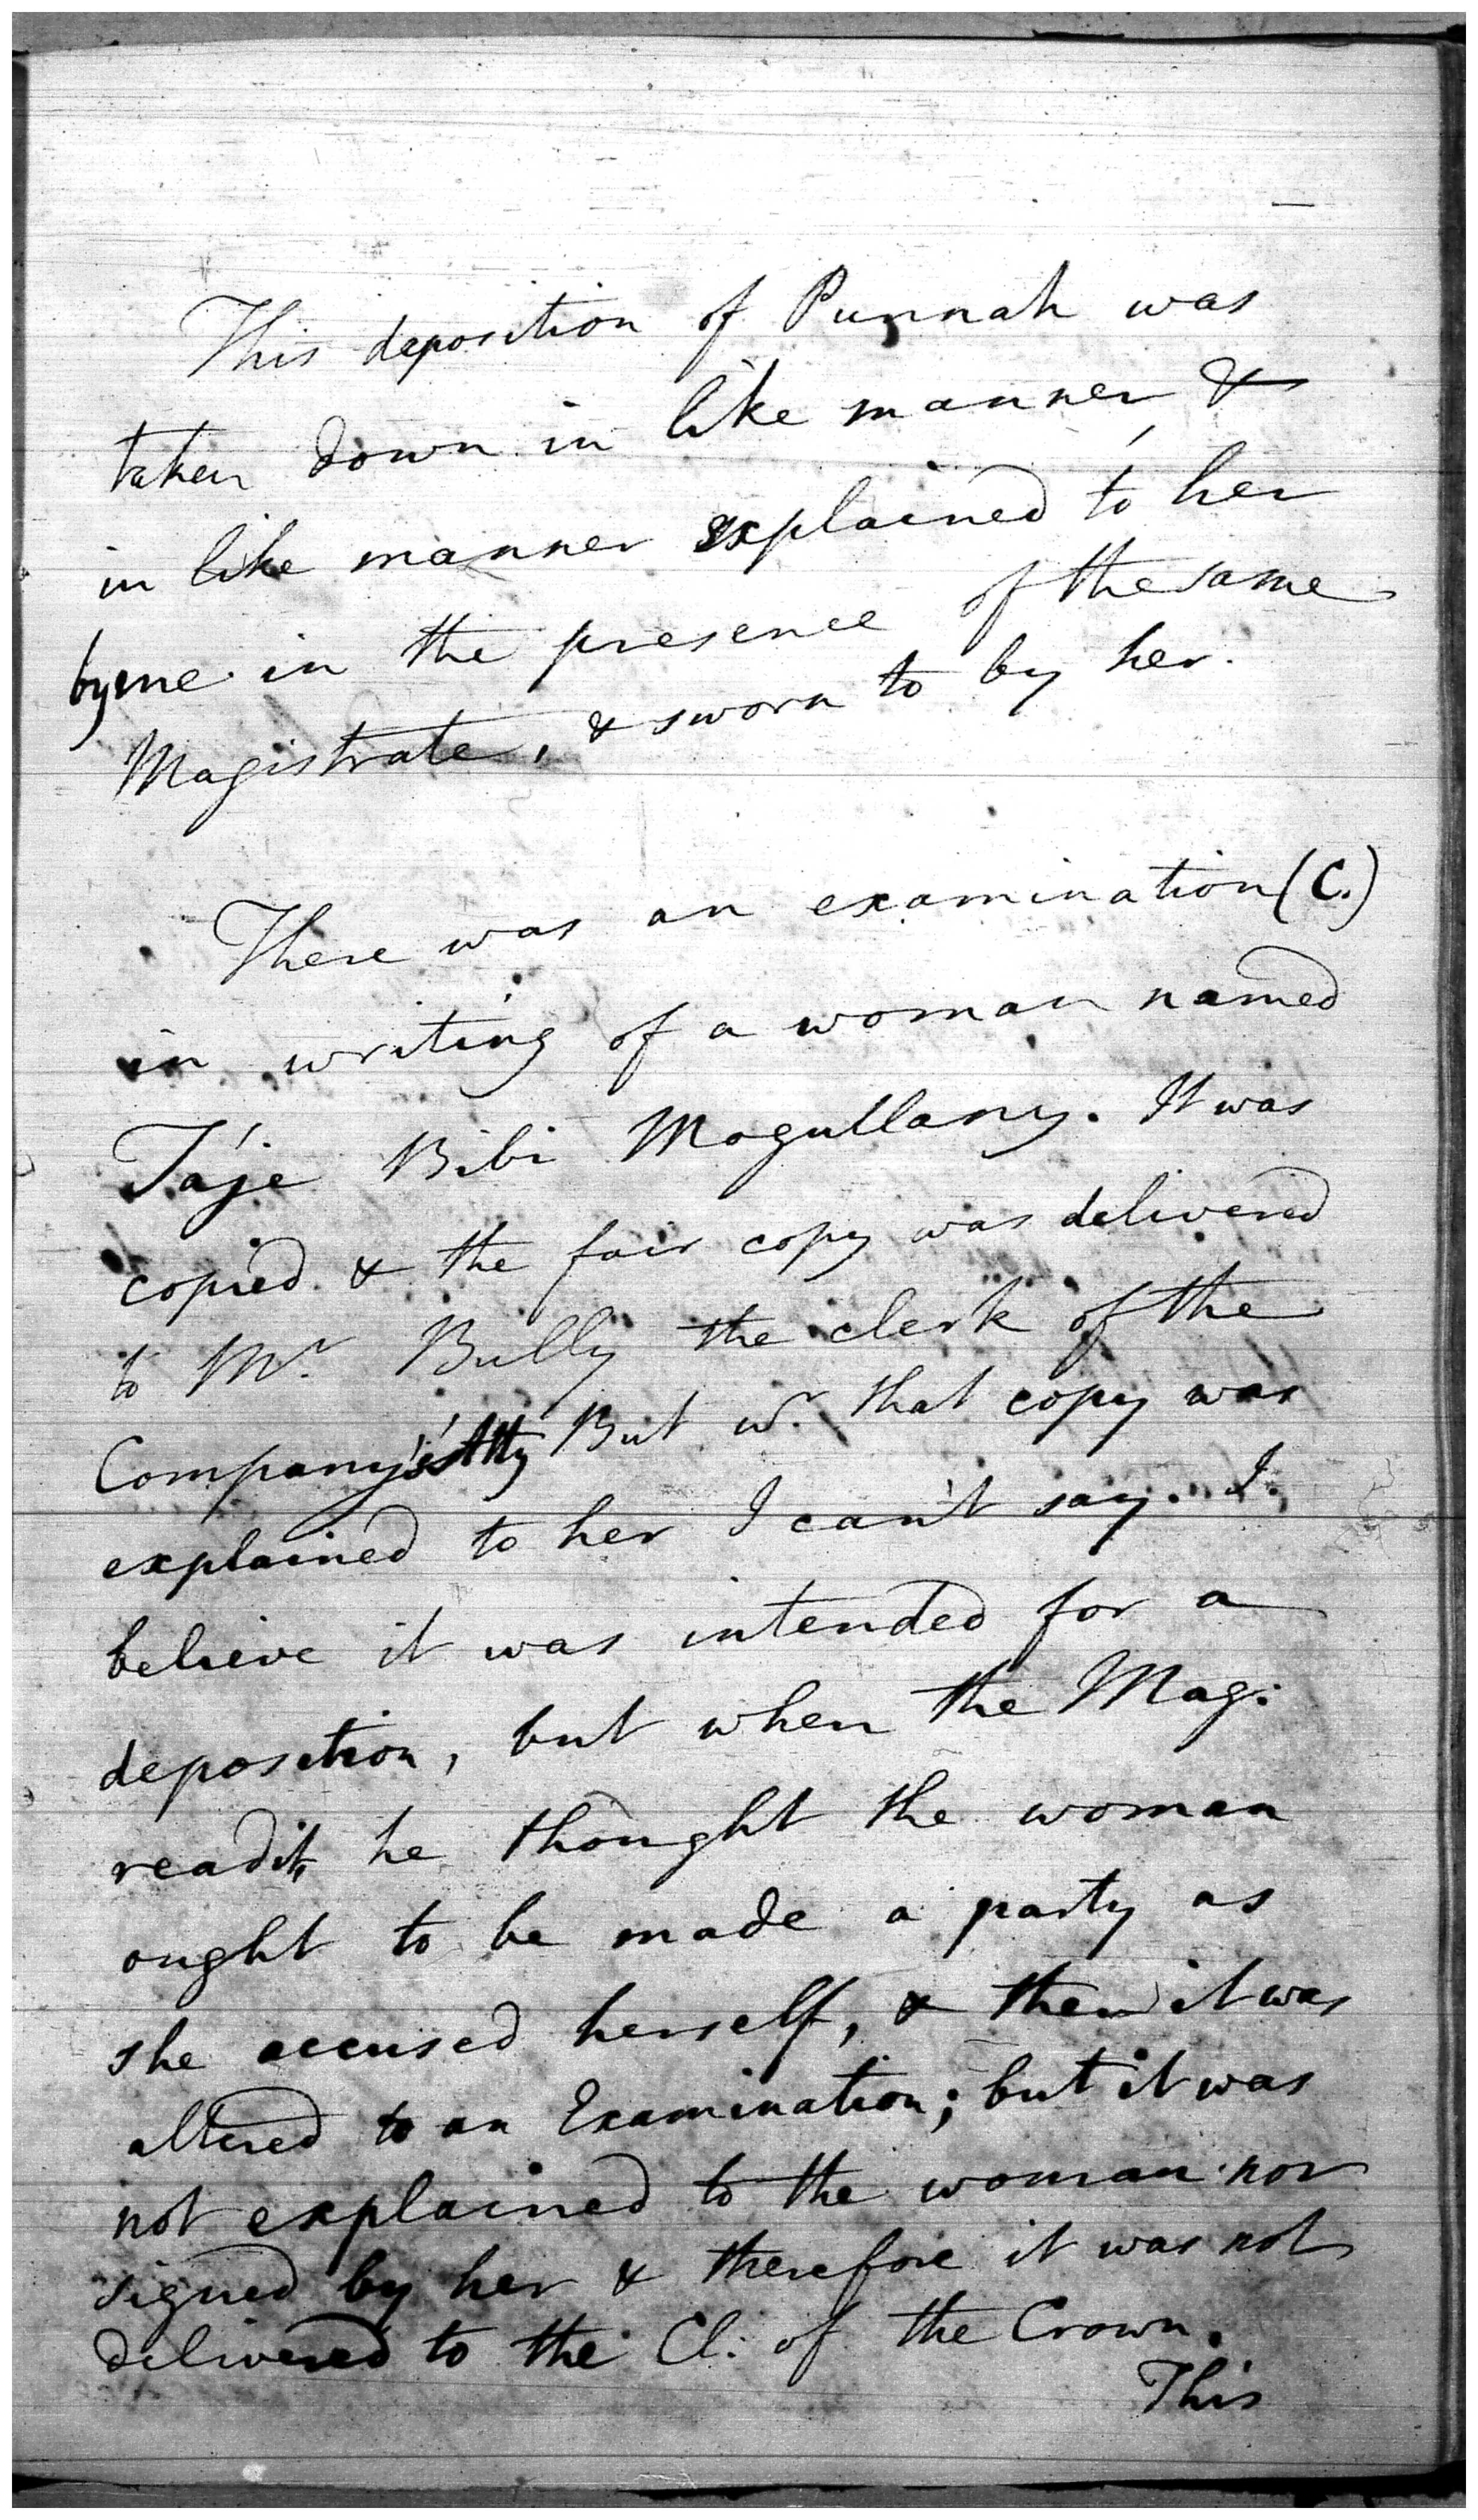 This deposition of Punnah was
taken down in like manner, &
in like manner explained to her
by me in the presence of the same
Magistrate, & sworn to by her.
There was an examination (C.)
in writing of a woman named
Táje Bibi Mogullany. It was
copied & the fair copy was delivered
to Mr. Bully the clerk of the
Company's Atty But wr. that copy was
explained to her I can't say. I
believe it was intended for a
deposition, but when the Mag:
read it, he thought the woman
ought to be made a party as
she accused herself, & then it was
altered to an Examination; but it was
not explained to the woman nor
signed by her & therefore it was not
delivered to the Cl: of the Crown.
This